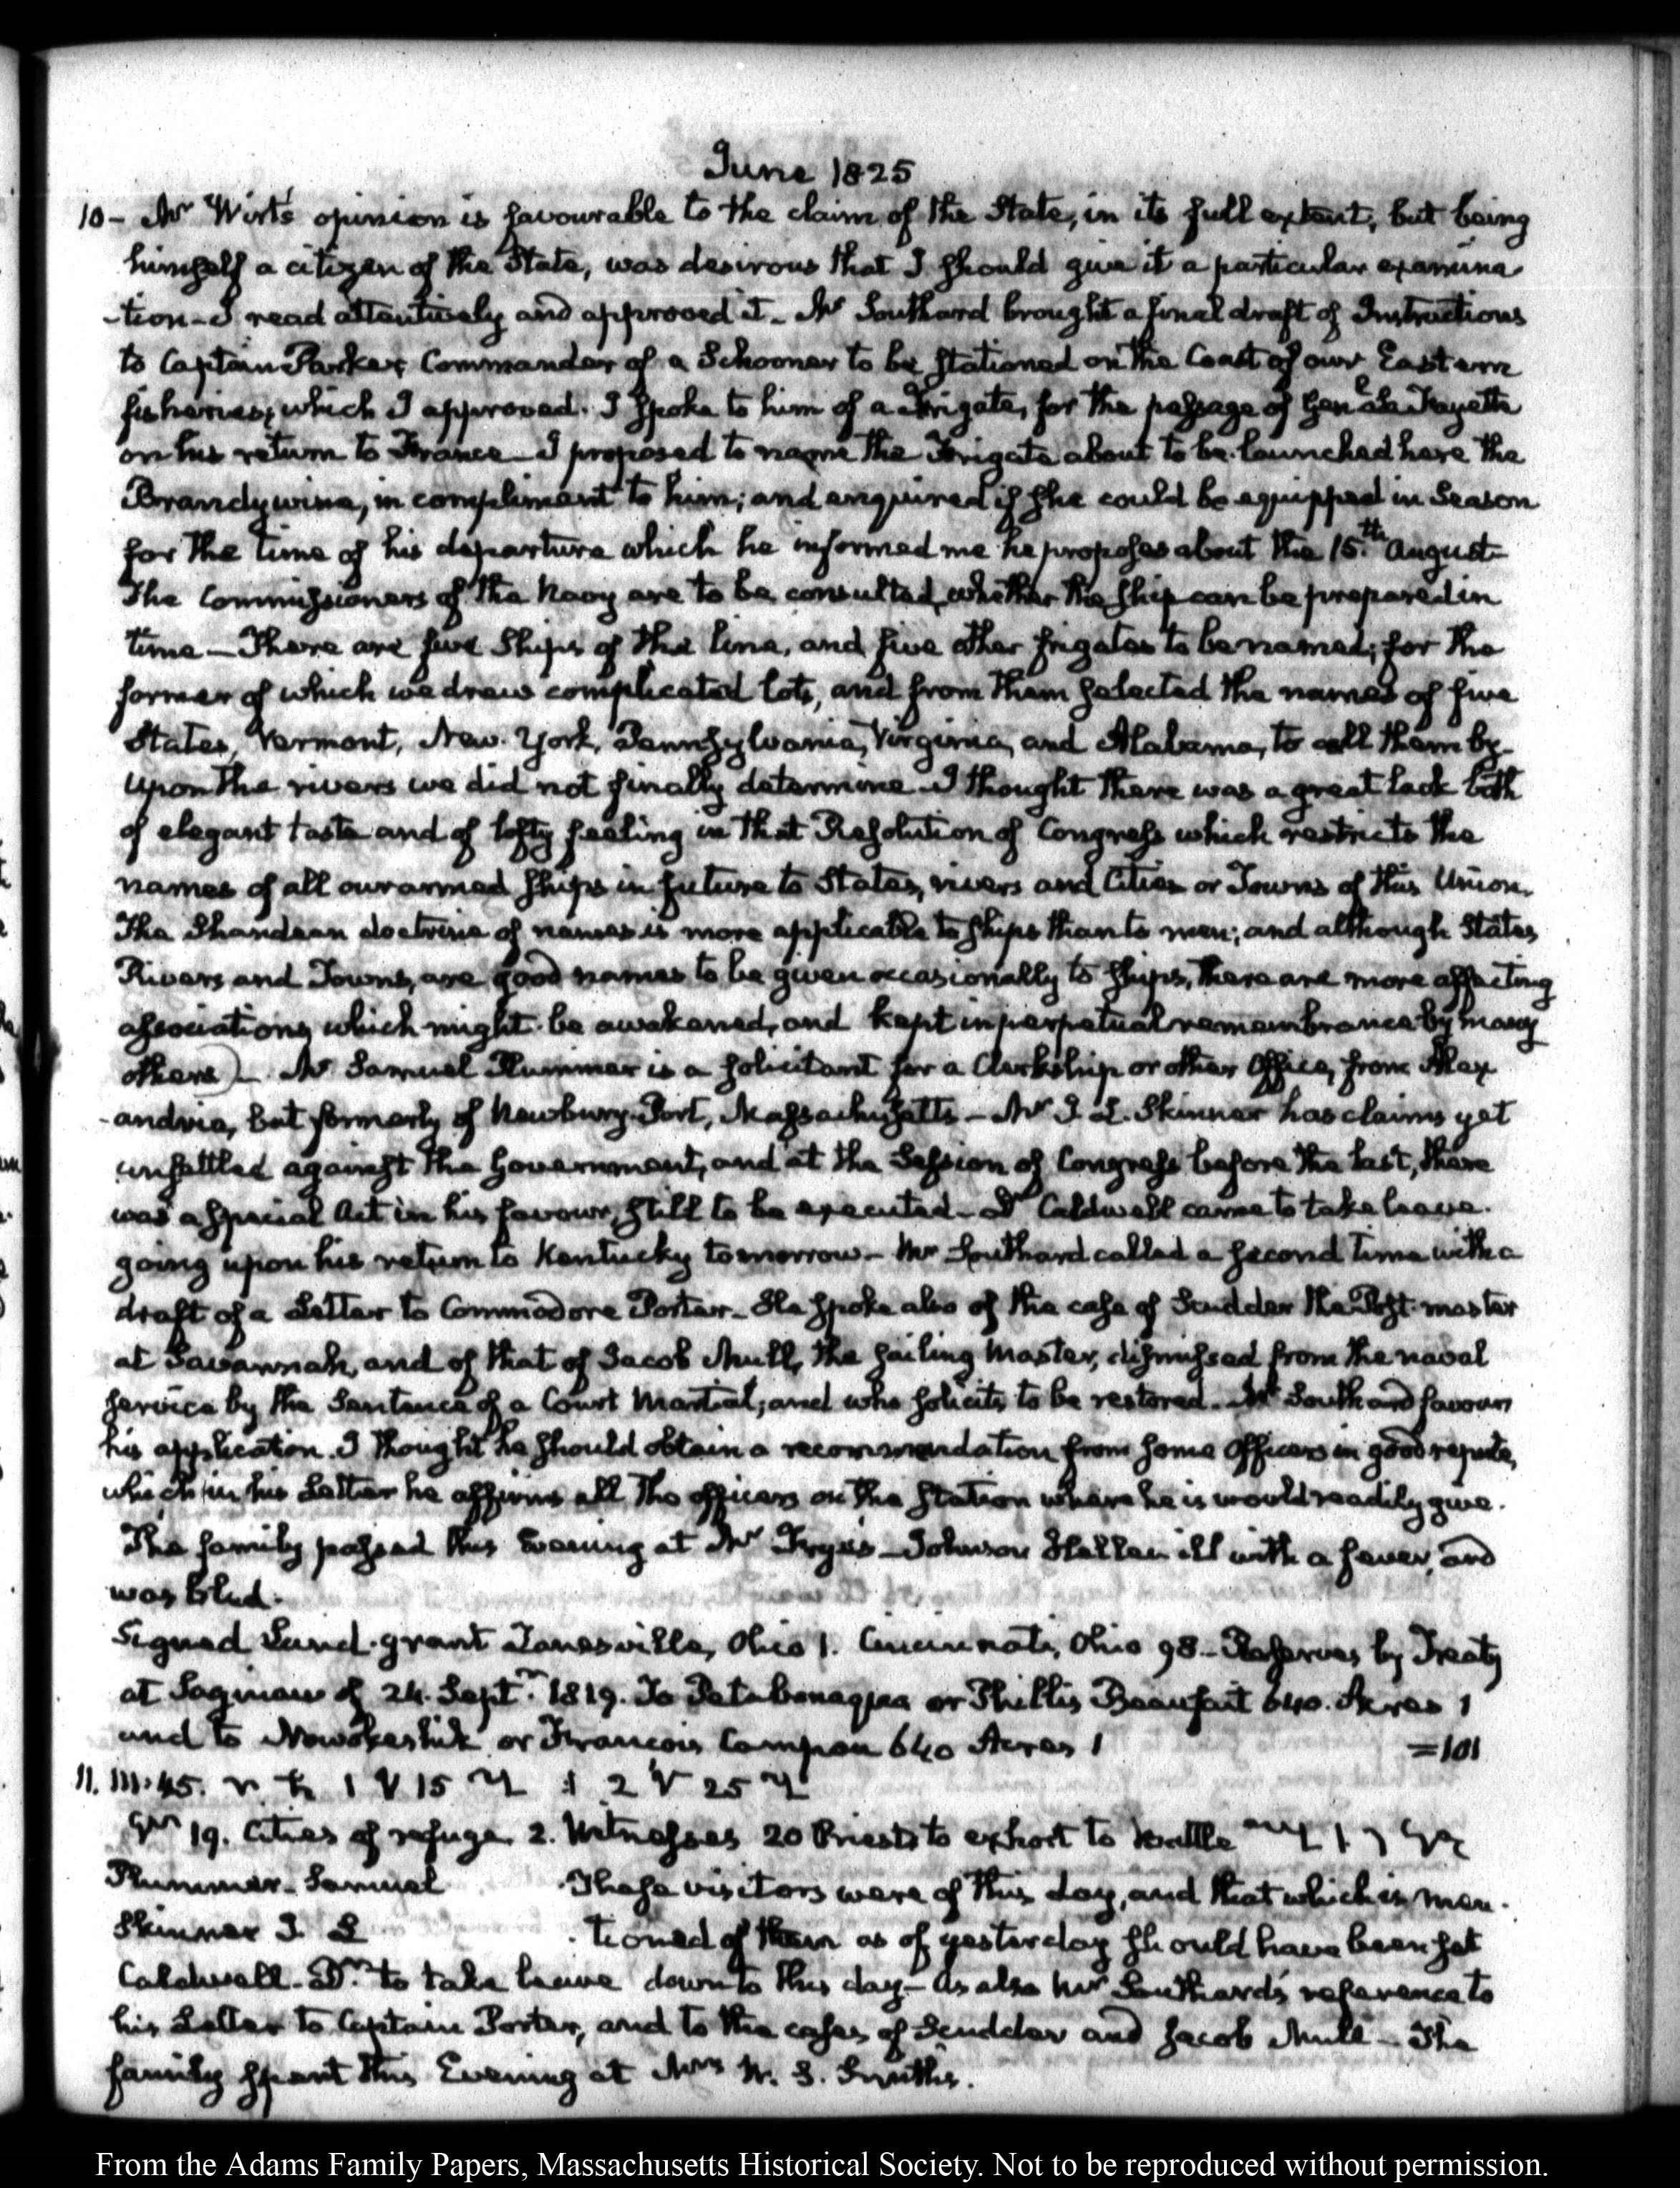 June 1825
10 - Mr Wirt's opinion is favourable to the claim of the State, in its full extent, but being
himself a citizen of the State, was desirous that I should give it a particular examina
-tion - I read attentively and approved it - Mr Southard brought a final draft of Instructions
to Captain Parker, Commander of a Schooner to be stationed on the Coast of our Eastern
fisheries, which I approved. I spoke to him of a Frigate, for the passage of Genl La Fayette
on his return to France - I proposed to name the Frigate about to be launched here the
Brandywine, in compliment to him; and enquired if she could be equipped in Season
for the time of his departure which he informed me he proposes about the 15.th August -
The Commissioners of the Navy are to be consulted, whether the ship can be prepared in
time - There are five Ships of the line, and five other frigates to be named; for the
former of which we drew complicated lots, and from them selected the names of five
States, Vermont, New-York, Pennsylvania, Virginia, and Alabama, to call them by -
Upon the rivers we did not finally determine - I thought there was a great lack both
of elegant taste and of lofty feeling in that Resolution of Congress which restricts the
names of all our armed ships in future to States, rivers and Cities or Towns of this Union.
The Shandean doctrine of names is more applicable to ships than to men; and although States,
Rivers and Towns, are good names to be given occasionally to ships, there are more affecting
associations which might be awakened, and kept in perpetual remembrance by many
others) - Mr Samuel Plummer is a solicitant for a Clerkship or other Office, from Alex
-andria, but formerly of Newbury-Port, Massachusetts - Mr I. L. Skinner has claims yet
unsettled against the Government, and at the Session of Congress before the last, there
was a special Act in his favour, still to be executed - Dr Caldwell came to take leave.
going upon his return to Kentucky tomorrow - Mr Southard called a second time with a
draft of a Letter to Commodore Porter - He spoke also of the case of Scudder the Post-master
at Savannah, and of that of Jacob Mull, the sailing Master, dismissed from the naval
service by the Sentence of a Court Martial; and who solicits to be restored. Mr Southard favours
his application. I thought he should obtain a recommendation from some Officers in good repute,
which in his Letter he affirms all the officers on the Station where he is would readily give.
The family passed this Evening at Mr Frye's - Johnson Hellen ill with a fever, and
was bled.
Signed Land-grant Zanesville, Ohio 1. Cincinnati, Ohio 98 - Reserves by Treaty
at Saginaw of 24. Septr 1819. To Petabonaqua or Phillis Beaufait 640. Acres 1
and to Nowokeshik or Francois Campau 640 Acres 1 = 101
11. III:45.
19. Cities of refuge 2. Witnesses 20 Priests to exhort to battle
Plummer - Samuel These visitors were of this day, and that which is men-
Skinner I. L tioned of them as of yesterday should have been set
Caldwell - Dr to take leave down to this day - As also Mr Southard's reference to
his Letter to Captain Porter, and to the cases of Scudder and Jacob Mull - The
family spent this Evening at Mrs W. S. Smith's.
From the Adams Family Papers, Massachusetts Historical Society. Not to be reproduced without permission.